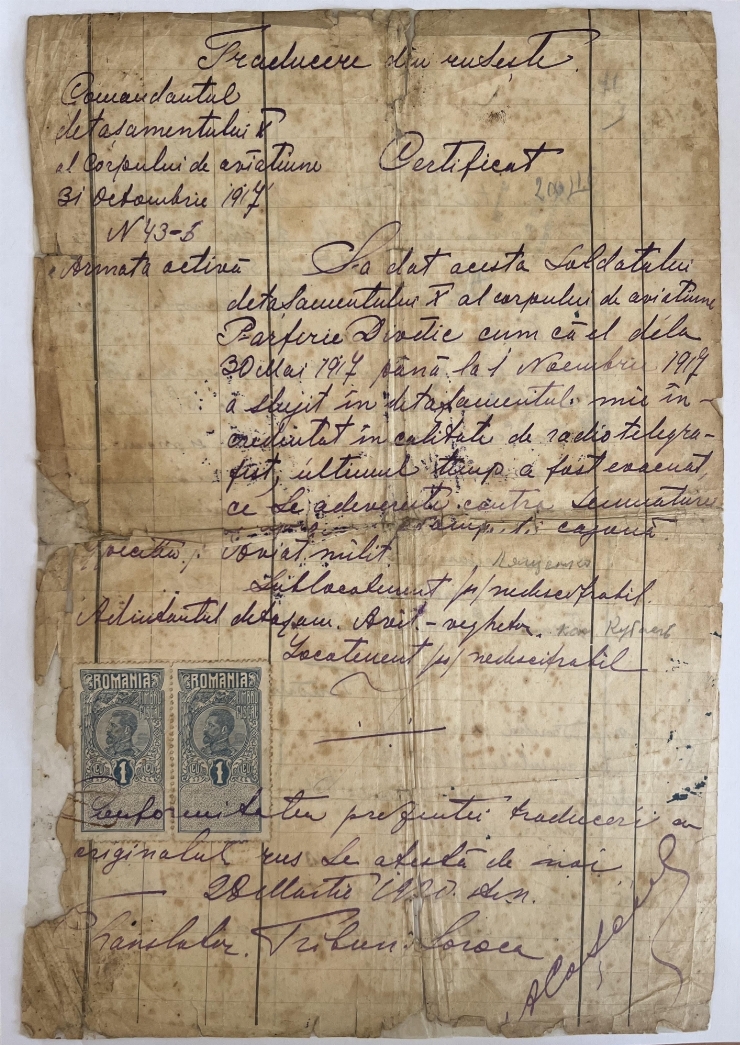 Traducere din rusește.
Comandantul
detașamentului X
al Corpului de aviatiune
31 Octombrie 1917
N 43-
Armata activă
Certificat
S-a dat acesta Soldatului
detașamentului X al corpului de aviatiune
Parferie Divotic cum că el dela
30 Mai 1917 până la 1 Noembrie 1917
a slujit în detașamentul mie în-
credintat în calitate de radiotelegra-
fist, ultimul timp a fost evacuat,
ce se adevereste contra semnăture
Aviat. milit.
Sublocotenent /ss/ nedescifrabil.
Adiutantul detașam. Avit.-
Locotenent /ss/ nedescifrabil
ROMANIA
TIMBRU FISCAL
1 LEU
ROMANIA
TIMBRU FISCAL
1 LEU
Conformitatea prezintei traduceri cu
originalul rus se atestă de noi
28 Martie 1920. a.n.
Translator. Tribun. Soroca